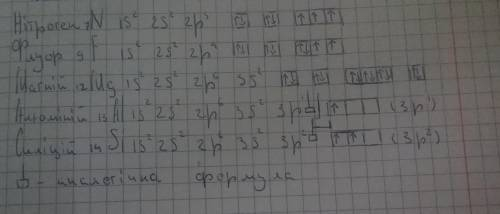 Нітроген 7N 1s² 2s² 2p³ ↑↓ ↑↓ ↑ ↑ ↑
Флуор 9F 1s² 2s² 2p⁴
Магній 12Mg 1s² 2s² 2p⁶ 3s²
Алюміній 13Al 1s² 2s² 2p⁶ 3s² 3p¹ ↑ (3p¹)
Силіцій 14Si 1s² 2s² 2p⁶ 3s² 3p² ↑ ↑ (3p²)
формула